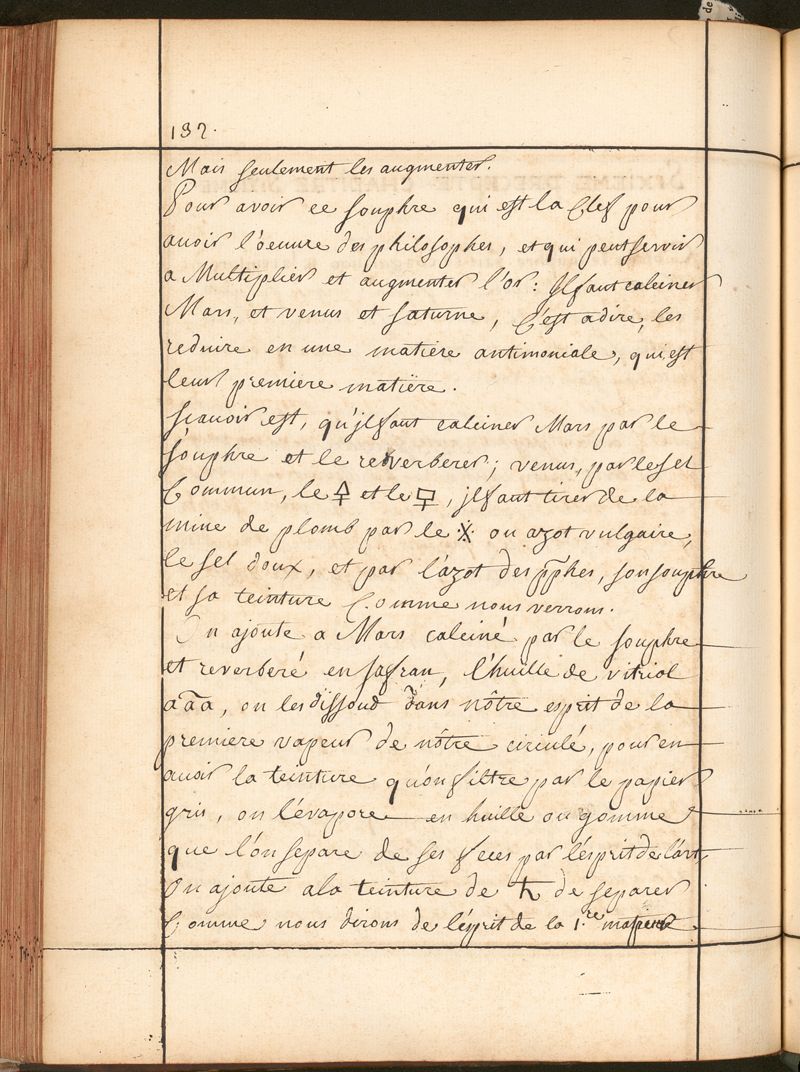 132.
Mais seulement les augmenter.
Pour avoir ce souphre qui est la Clef pour
auoir l'oeuure des philosophes, et qui peut servir
a Multiplier et augmenter l'or: Il faut calciner
Mars, et venus et saturne, C'est a dire, les
reduire en une matiere antimoniale, qui est
leur premiere matiëre.
Scauoir est, qu'jl faut calciner Mars par le
souphre et le reverberer; venus, par le sel
Commun, le 🜍 et le 🜖, jl faut tirer de la
mine de plomb par le ※ ou azot vulgaire,
le sel doux, et par l'azot des p̃p̃hes, son souphre
et sa teinture Comme nous verrons.
On ajoute a Mars calciné par le souphre
et reverberé en safran, l'huille de vitriol
aãa, on les dissoud dans nôtre esprit de la
premiere vapeur de nôtre circulé, pour en
auoir la teinture qu'on filtre par le papier
gris, on l'évapore en huille ou gomme
que l'on separe de ses feces par l'esprit de l'art,
On ajoute a la teinture de ♄ de separer
Comme nous dirons de l'esprit de la 1.re matiere